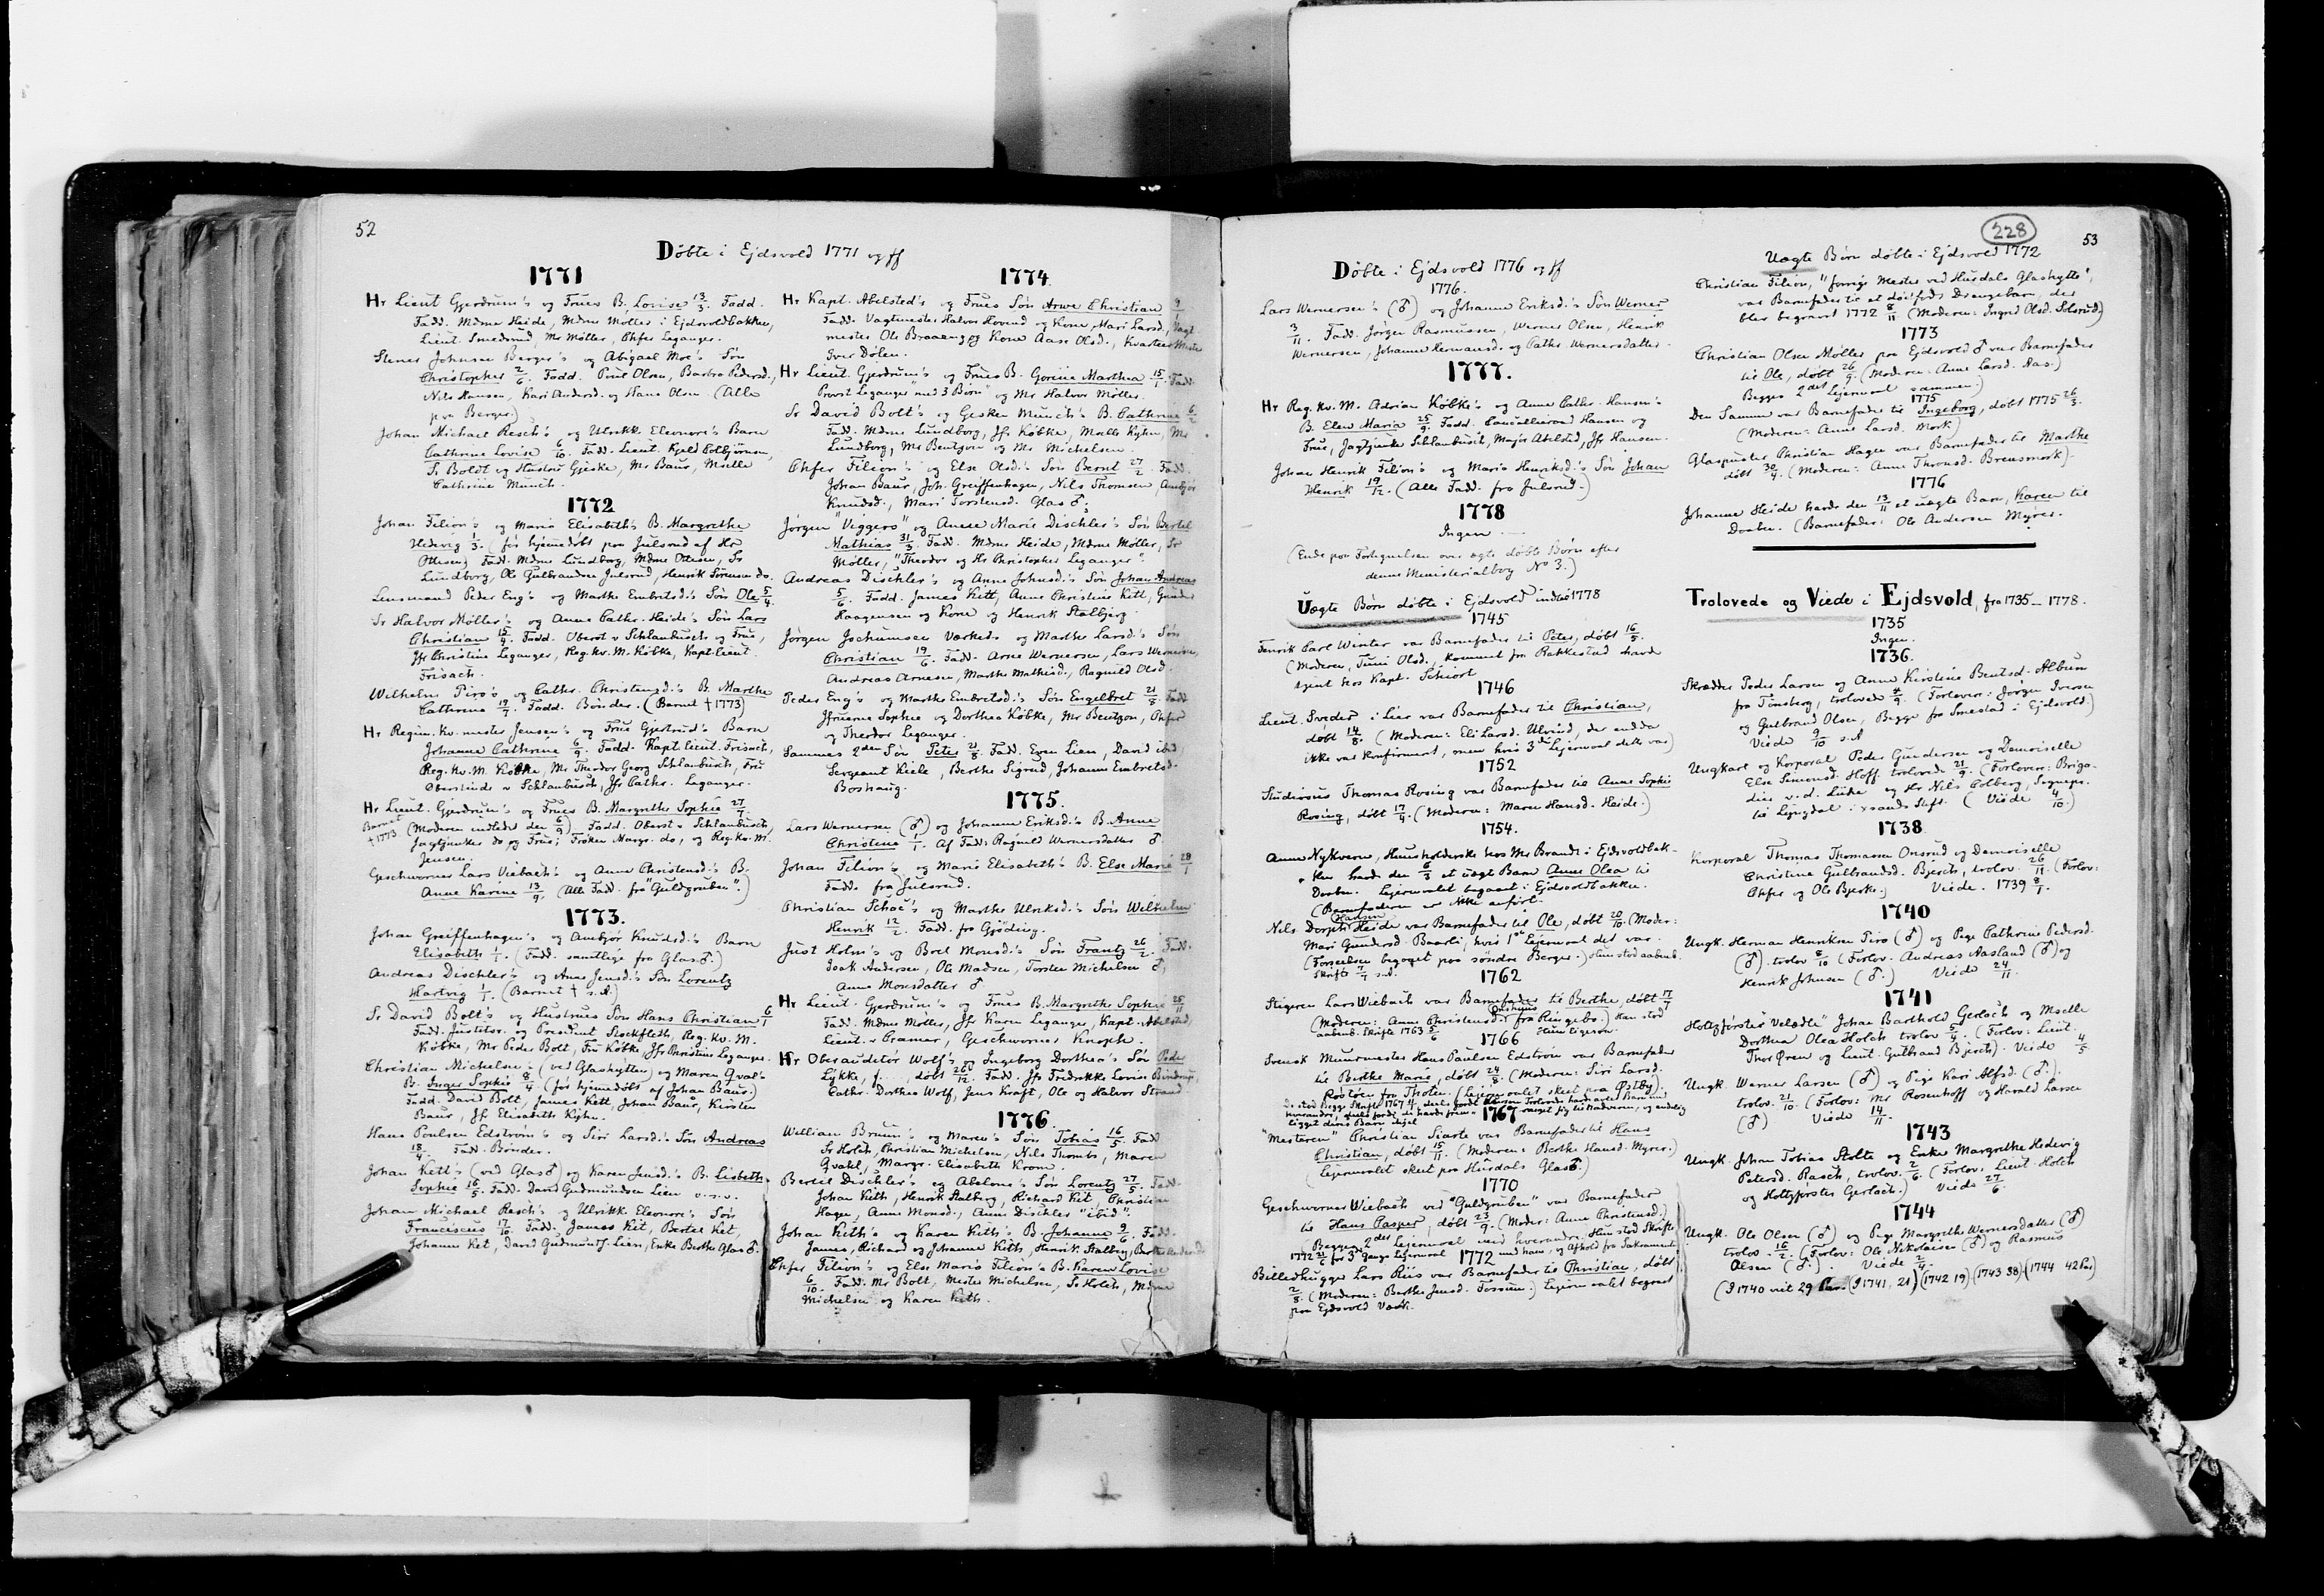 52
Døbte i Ejdsvold 1771 og ff
1771
Hr Lieut Gjerdrum's og Frues B. Lovise 13/3. Fadd.
Fadd. Mdme Heide, Mdme Møller i Ejdsvoldbakken,
Lieut. Smedsrud, Mr Møller, Chfer Leganger.
Stener Johnsen Berger's og Abigael Moe's Søn
Christopher 2/6. Fadd. Poul Olsen, Barbro Pedersd.,
Nils Hansen, Kari Andersd. og Hans Olsen (Alle
paa Berger.)
Johan Michael Resch's og Ulrikk Eleonore's Barn
Cathrine Lovise 6/10. Fadd. Lieut. Kjeld Colbjørnsen,
Sr Boldt og Hustru Gjeske, Mr Baur, Mselle
Cathrine Munch.
1772
Johan Filion's og Maria Elisabeth's B. Margrethe
Hedevig 1/3. (før hjemedøbt paa Julsrud af Hr
Ottesen) Fadd. Mdme Lundborg, Mdme Ottesen, Sr
Lundborg, Ole Gulbrandsen Julsrud, Henrik Sørensen do.
Lensmand Peder Eng's og Marthe Embretsd.'s Søn Ole 5/4.
Sr Halvor Møller's og Anne Cathr. Heide's Søn Lars
Christian 15/9. Fadd. Oberst v Schlanbusch og Frue,
Jfr Christine Leganger, Reg. Kv. M. Købke, Kapt. lieut.
Frisach.
Wilhelm Piro's og Cathr. Christensd.'s B. Marthe
Cathrine 19/7. Fadd. Bønder. (Barnet † 1773)
Hr Regim. Kv. mester Jensen's og Frue Gjertrud's Barn
Johanne Cathrine 6/9. Fadd. Kapt. lieut. Frisach,
Reg. Kv. M. Købke, Mr Theodor Georg Schlanbusch, Fru
Oberstinde v Schlanbusch, Jfr Cathr. Leganger.
Hr Lieut. Gjerdrum's og Frues B. Margrethe Sophie 27/7.
Barnet † 1773
(Moderen indledet den 6/9) Fadd. Oberst v Schlanbusch,
Jagtjunker do og Frue; Frøken Margr. do, og Reg. Kv. M.
Jensen.
Geschworner Lars Viebach's og Anne Christensd.'s B.
Anne Karine 13/9. (Alle Fadd. fra "Guldgruben".)
1773.
Johan Greiffenhagen's og Ambjør Knudsd.'s Barn
Elisabeth 1/1. (Fadd. samtlige fra Glas♂.)
Andreas Dischler's og Anne Jensd.'s Søn Lorentz
Hartvig 1/1. (Barnet † s.A.)
Sr David Bolt's og Hustrues Søn Hans Christian 6/1
Fadd. Justitsr. og President Stockfleth, Reg. Kv. M.
Købke, Mr Peder Bolt, Fru Købke, Jfr Christine Leganger.
Christian Michelsen's (ved Glashytten) og Maren Qval's
B. Inger Sophie 8/4 (før hjemedøbt af Johan Baur.)
Fadd. David Bolt, James Kett, Johan Baur, Kirsten
Baur, Jf. Elisabeth Kyhn.
Hans Poulsen Edstrøm's og Siri Larsd.'s Søn Andreas
18/4. Fadd. Bønder.
Johan Kett's (ved Glas♂) og Karen Jensd.'s B. Lisbeth
Sophie 16/5. Fadd. David Gudmundsen Lien o.s.v.
Johan Michael Resch's og Ulrikk Eleonore's Søn
Franciscus 17/10. Fadd. James Ket, Bertel Ket,
Johanne Ket, David Gudmunds. Lien, Enke Berthe Glas♂.
1774.
Hr Kapt. Abelsted's og Frues Søn Arwe Christian
Fadd. Vagtmester Halvor Hovind og Kone, Mari Larsd., Vagt
mester Ole Braaeng og Kone Aase Olsd., Kvarteermester
Iver Dølen.
Hr Lieut. Gjerdrum's og Frues B. Gorine Marthea 15/1. Fadd.
Provst Leganger "med 3 Børn" og Mr Halvor Møller.
Sr David Bolt's og Gesken Munch's B. Cathrine 6/2
Fadd. Mdme Lundborg, Jfr Købke, Mselle Kyhn, Mr
Lundborg, Mr Bentzon og Mr Michelsen.
Chfer Filion's og Else Olsd.'s Søn Bernt 27/2. Fadd.
Johan Baur, Joh. Greiffenhagen, Nils Thomsen, Ambjør
Knudsd., Mari Torstensd. Glas♂.
Jørgen "Viggers" og Anne Marie Dischler's Søn Bertel
Mathias 31/3. Fadd. Mdme Heide, Mdme Møller, Sr
Møller, "Theodor og Hr Christopher Leganger".
Andreas Dischler's og Anne Johnsd.'s Søn Johan Andreas
5/6. Fadd. James Kett, Anne Christine Kett, Gunder
Haagensen og Kone og Henrik Stalbjerg.
Jørgen Jochumsen Værkeds og Marthe Larsd.'s Søn
Christian 19/6. Fadd. Arne Wernersen, Lars Wernersen,
Andreas Arnesen, Marthe Mathisd., Ragnild Olsd.
Peder Eng's og Marthe Embretsd.'s Søn Engelbret 21/8. Fadd
Jfruerne Sophie og Dorthea Købke, Mr Bentzon, Chfer
og Theodor Leganger.
Sammes 2den Søn Peter 21/8. Fadd. Even Lien, David ibid,
Sergeant Kiele, Berthe Sigrud, Johanne Embretsd.
Boshaug.
1775.
Lars Wernersen (♂) og Johanne Eriksd.'s B. Anne
Christine 1/1. Af Fadd: Ragnild Wernersdatter ♂
Johan Filion's og Marie Elisabeth's B. Else Marie 28/1
Fadd. fra Julsrud.
Christian Schoe's og Marthe Ulriksd.'s Søn Wilhelm
Henrik 12/2. Fadd. fra Gjøding.
Just Holm's og Boel Monsd.'s Søn Frantz 26/2. Fadd.
Isak Andersen, Ole Madsen, Torsten Michelsen ♂,
Anne Monsdatter ♂
Hr Lieut. Gjerdrum's og Frues B. Margrethe Sophie 25/11
Fadd. Mdme Møller, Jfr Karen Leganger, Kapt. Abelsted,
Lieut. v Cramer, Geschworner Knoph.
Hr Oberauditør Wolf's og Ingeborg Dorthea's Søn Peder
Lykke, f. ... døbt 26/12. Fadd. Jfr Fredrikke Lovise Bindrup,
Cathr. Dorthea Wolf, Jens Kraft, Ole og Halvor Strand
1776.
William Bruun's og Maren's Søn Tobias 16/5. Fadd
Sr Holch, Christian Michelsen, Nils Thombs, Maren
Qvahl, Margr. Elisabeth Krom.
Bertel Dischler's og Abelone's Søn Lorentz 27/5. Fadd.
Johan Kith, Henrik Stalberg, Richard Kit, Christian
Hagen, Anne Monsd., Anne Dischler "ibid".
Johan Keth's og Karen Keth's B. Johanne 9/6. Fadd.
James, Richard og Johanne Keth, Henrik Stalberg, Berthe
Chfer Filion's og Else Maria Filion's B. Karen Lovise
6/10. Fadd. Mr Bolt, Mester Michelsen, Sr Holch, Mdme
Michelsen og Karen Keth.
228
53
Døbte i Ejdsvold 1776 og ff
1776.
Lars Wernersen's (♂) og Johanne Eriksd.'s Søn Werner
3/11. Fadd. Jørgen Rasmussen, Werner Olsen, Henrik
Wernersen, Johanne Hermansd. og Cathr. Wernersdatter.
1777.
Hr Reg. Kv. M. Adrian Købke's og Anne Cathr. Hansen's
B. Elen Maria 25/9. Fadd. Cancelliraad Hansen og
Frue, Jagtjunker Schlanbusch, Major Abelsted, Jfr Hansen.
Johan Henrik Filion's og Maria Henriksd.'s Søn Johan
Henrik 19/12. (Alle Fadd. fra Julsrud.)
1778
Ingen.
(Ende paa Fortegnelsen over ægte døbte Børn efter
denne Ministerialbog No 3.)
Uægte Børn døbte i Ejdsvold indtil 1778
1745
Fenrik Carl Winter var Barnefader til Peter, døbt 16/5.
(Moderen, Tuni Olsd., kommet fra Rakkestad havde
tjent hos Kapt. Schiort
1746
Lieut. Sveder i Lier var Barnefader til Christian,
døbt 14/8. (Moderen: Eli Larsd. Ulvind, der endda
ikke var konfirmert, men hvis 3die Lejermaal dette var)
1752
Studiosus Thomas Rosing var Barnefader til Anne Sophie
Rosing, døbt 17/9. (Moderen: Maren Hansd. Heide.)
1754.
Anne Nykvern, Huusholderske hos Mr Brandt i Ejdsvoldbak-
ken havde den 6/3 et uægte Barn Anne Olea til
Daaben. Lejermaalet begaaet i Ejdsvoldbakken.
(Barnefaderen er ikke anført.
Hansen
Nils Dorph Heide var Barnefader til Ole, døbt 20/10. (Moder:
Mari Gundersd. Baarli, hvis 1ste Lejermaal det var.
(Forseelsen begaaet paa søndre Berger.) Hun stod aabenb.
Skrifte 7/7 s.A.
1762
Stigeren Lars Wiebach var Barnefader til Berthe, døbt 17/7
(Moderen: Anne Christensd. fra Ringebo.) Han stod
aabenb. Skifte 1763 5/6 Hun ligesaa.
1766
Svensk Muurmester Hans Paulsen Edstrøm var Barnefader
til Berthe Marie, døbt 24/8. (Moderen: Siri Larsd.
Røstøen fra Thoten. (Lejermaalet skeet paa Østby).
1767
"Mesteren" Christian Siarte var Barnefader til Hans
Christian, døbt 15/11. (Moderen: Berthe Hansd. Myrer.)
(Lejermaalet skeet paa Hurdals Glas♂.)
1770
Geschworner Wiebach ved "Guldgruben" var Barnefader
til Hans Casper, døbt 23/9. (Moder: Anne Christensd.)
Begges 2det Lejermaal med hverandre. Hun stod Skrifte
1772 21/6 for 3die Gangs Lejermaal med ham, og afhold fra Sakrament.
1772
Billedhugger Lars Riis var Barnefader til Christian, døbt
2/8. (Moderen: Berthe Jensd. Fossum.) Lejermaalet begaaet
paa Ejdsvold Værk.
Uægte Børn døbte i Ejdsvold 1772
Christian Filion, "forrige Mester ved Hurdals Glashytte",
var Barnefader til et dødfødt Drengebarn, der
blev begravet 1772 8/11 (Moderen: Ingrid Olsd. Solsrud.)
1773
Christian Olsen Møller paa Ejdsvold ♂ var Barnefader
til Ole, døbt 26/9. (Moderen: Anne Larsd. Aas.)
Begges 2det Lejermaal sammen.)
1775
Den Samme var Barnefader til Ingeborg, døbt 1775 26/3.
(Moderen: Anne Larsd. Mork)
Glaspuster Christian Hagen var Barnefader til Marthe
døbt 30/4. (Moderen: Anne Thronsd. Brensmork).
1776
Johanne Heide havde den 13/11 et uægte Barn, Karen til
Daaben. (Barnefader: Ole Andersen Myrer.
Trolovede og Viede i Ejdsvold, fra 1735–1778.
1735
Ingen.
1736.
Skrædder Peder Larsen og Anne Kirstine Bentsd. Album
fra Tønsberg, trolovede /9. (Forlovere: Jørgen Iversen
og Gulbrand Olsen, Begge fra Smestad i Ejdsvold.)
Viede 9/10 s.A
Ungkarl og Korporal Peder Gundersen og Demoiselle
Else Simensd. Hoff trolovede 21/9. (Forlovere: Briga-
dier v.d. Lühe og Hr Nils Colberg, Sognepr.
til Lyngdal i Xsands Stift. (Viede 4/10.)
1738
Korporal Thomas Thomassen Onsrud og Demoiselle
Christine Gulbrandsd. Bjerch, trolov. 26/11. (Forlov:
Chfer og Ole Bjerke.) Viede. 1739 8/1.
1740
Ungk. Herman Henriksen Piro (♂) og Pige Cathrine Pedersd.
(♂) trolov 8/10 (Forlov. Andreas Aasland (♂) og
Henrik Johnsen (♂.) Viede 24/11.
1741
Holtzførster "Velædle" Johan Barthold Gerlach og Mselle
Dorthea Olea Holch trolov 5/4. (Forlov: Lieut.
Thor Øren og Lieut. Gulbrand Bjerch). Viede 4/5
Ungk. Werner Larsen (♂) og Pige Kari Alfsd. (♂.)
trolov. 21/10. (Forlov: Mr Rosenhoff og Harald Larsen
(♂) Viede 14/11.
1743
Ungk. Johan Tobias Stolte og Enke Margrethe Hedevig
Petersd. Rasch, trolov. 2/6. (Forlov: Lieut. Holch
og Holtzførster Gerlach.) Viede 27/6.
1744
Ungk. Ole Olsen (♂) og Pige Margrethe Wernersdatter (♂)
trolov. 16/2. (Forlov: Ole Nikolaisen (♂) og Rasmus
Olsen (♂.) Viede 2/4.
(I 1740 viet 29 Par) (I 1741, 21) (1742 19) (1743 38) (1744 42 Par)